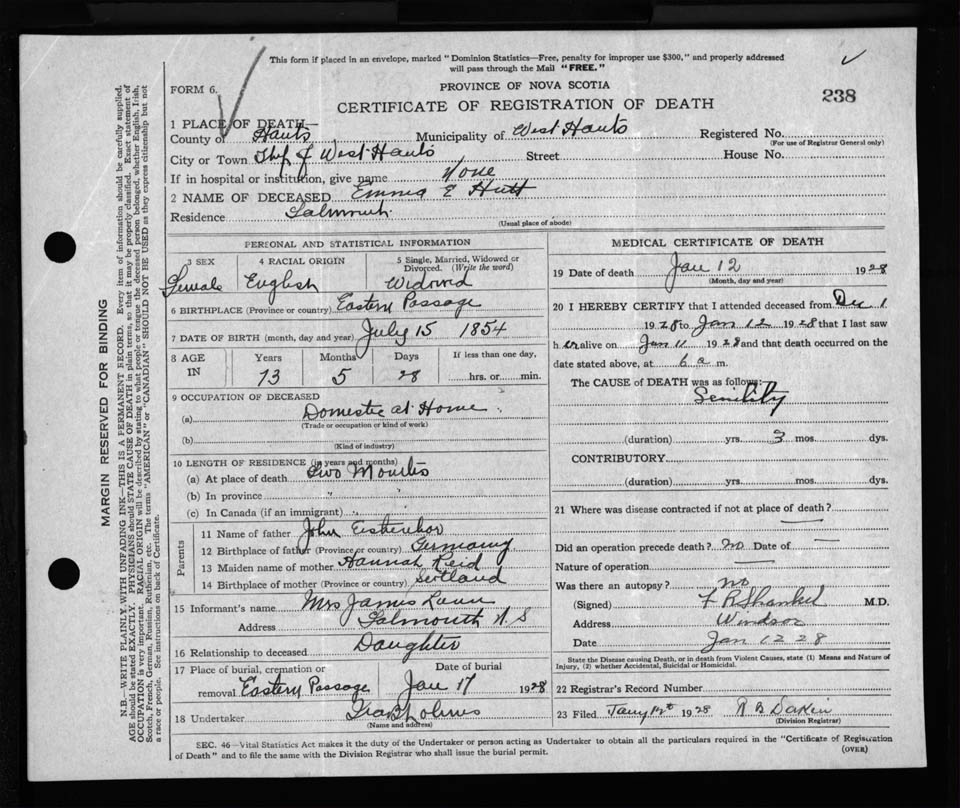 This form if placed in an envelope, marked "Dominion Statistics—Free, penalty for improper use $300," and properly addressed
will pass through the Mail "FREE."
FORM 6.
PROVINCE OF NOVA SCOTIA
CERTIFICATE OF REGISTRATION OF DEATH
238
1 PLACE OF DEATH—
County of Hants Municipality of West Hants Registered No.
(For use of Registrar General only)
City or Town of West Hants Street House No.
If in hospital or institution, give name None
2 NAME OF DECEASED Emma E Hutt
Residence Falmouth
(Usual place of abode)
PERSONAL AND STATISTICAL INFORMATION
3 SEX 4 RACIAL ORIGIN 5 Single, Married, Widowed or
Divorced. (Write the word)
Female English Widowed
6 BIRTHPLACE (Province or country) Eastern Passage
7 DATE OF BIRTH (month, day and year) July 15 1854
8 AGE IN Years Months Days If less than one day,
73 5 28 hrs. or min.
9 OCCUPATION OF DECEASED
(a) Domestic at Home
(Trade or occupation or kind of work)
(b)
(Kind of industry)
10 LENGTH OF RESIDENCE (in years and months)
(a) At place of death Two Months
(b) In province " "
(c) In Canada (if an immigrant)
Parents
11 Name of father John
12 Birthplace of father (Province or country) Germany
13 Maiden name of mother Hannah Reid
14 Birthplace of mother (Province or country) Scotland
15 Informant's name Mrs James
Address Falmouth N.S
16 Relationship to deceased Daughter
17 Place of burial, cremation or Date of burial
removal Eastern Passage Jan 17 1928
18 Undertaker
(Name and address)
MEDICAL CERTIFICATE OF DEATH
19 Date of death Jan 12 1928
(Month, day and year)
20 I HEREBY CERTIFY that I attended deceased from Dec 1
1928 to Jan 12 1928 that I last saw
h er alive on Jan 11 1928 and that death occurred on the
date stated above, at 6 a m.
The CAUSE OF DEATH was as follows:
Senility
(duration) yrs. 3 mos. dys.
CONTRIBUTORY
(duration) yrs. mos. dys.
21 Where was disease contracted if not at place of death? —
Did an operation precede death? no Date of —
Nature of operation —
Was there an autopsy? no
(Signed) F R Shankel M.D.
Address Windsor
Date Jan 12 28
State the Disease causing Death, or in death from Violent Causes, state (1) Means and Nature of
Injury, (2) whether Accidental, Suicidal or Homicidal.
22 Registrar's Record Number
23 Filed 1928 R B Dakin
(Division Registrar)
SEC. 46—Vital Statistics Act makes it the duty of the Undertaker or person acting as Undertaker to obtain all the particulars required in the "Certificate of Registration
of Death" and to file the same with the Division Registrar who shall issue the burial permit. (OVER)
MARGIN RESERVED FOR BINDING
N.B.—WRITE PLAINLY, WITH UNFADING INK—THIS IS A PERMANENT RECORD. Every item of information should be carefully supplied.
AGE should be stated EXACTLY. PHYSICIANS should STATE CAUSE OF DEATH in plain terms, so that it may be properly classified. Exact statement of
OCCUPATION is very important. RACIAL ORIGIN will be described by stating to what people or tongue the deceased person belonged, whether English, Irish,
Scotch, French, German, Russian, Ruthenian, etc. The terms "AMERICAN" or "CANADIAN" SHOULD NOT BE USED as they express citizenship but not
a race or people. See instructions on back of Certificate.